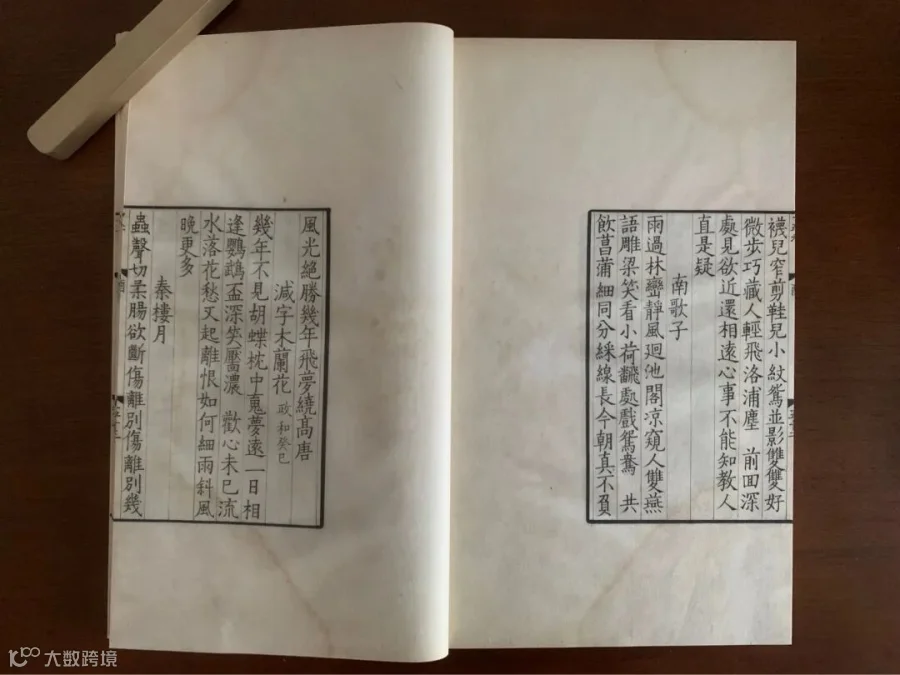 襪兒窄剪鞋兒小紋鴛並影雙雙好
微步巧藏人輕飛洛浦塵 前面深
處見欲近還相遠心事不能知教人
直是疑
南歌子
雨過林巒靜風迴池閣凉窺人雙燕
語雕梁笑看小荷飜處戲鴛鴦 共
飲菖蒲細同分綵線長今朝真不負
風光絕勝幾年飛夢繞高唐
減字木蘭花 政和癸巳
幾年不見胡蝶枕中䰟夢遠一日相
逢鸚鵡盃深笑靨濃 歡心未已流
水落花愁又起離恨如何細雨斜風
晚更多
秦樓月
蟲聲切柔腸欲斷傷離別傷離別幾
大数跨境